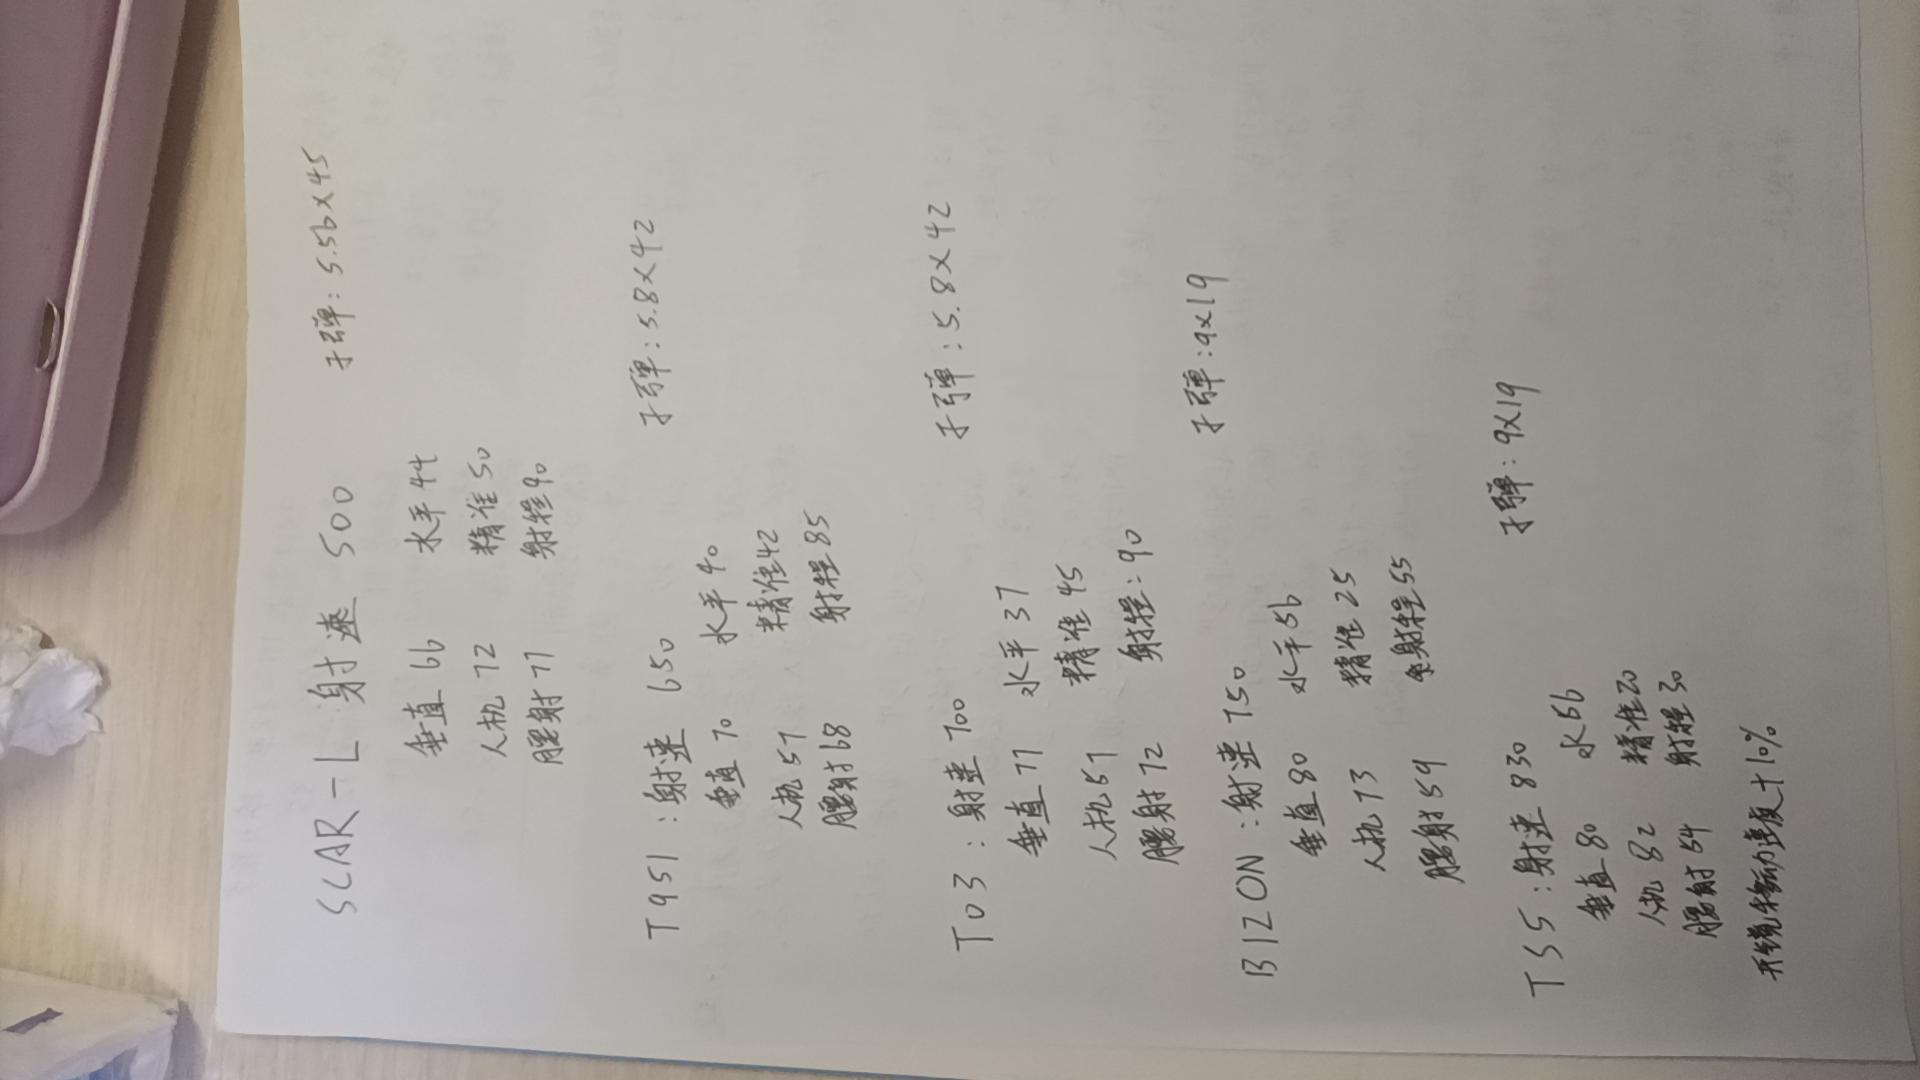 SCAR-L 射速 500 子弹:5.56×45
垂直 66 水平 44
人机 72 精准 50
腰射 71 射程 90
T951:射速 650 子弹:5.8×42
垂直 70 水平 40
人机 57 精准 42
腰射 68 射程 85
T03:射速 700 子弹:5.8×42
垂直 71 水平 37
人机 57 精准 45
腰射 72 射程:90
BIZON:射速 750 子弹:9×19
垂直 80 水平 56
人机 73 精准 25
腰射 59 射程 55
TSS:射速 830 子弹:9×19
垂直 80 水 56
人机 82 精准 20
腰射 54 射程 30
开镜移动速度+10%